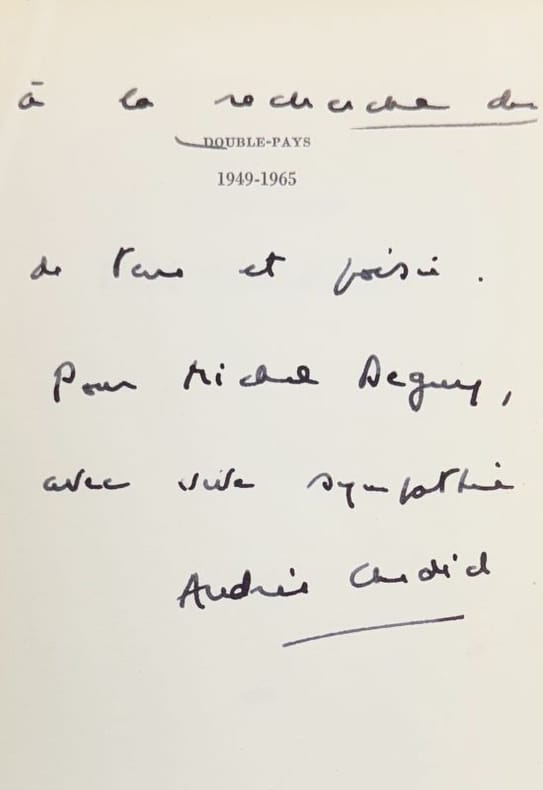 à la recherche du
DOUBLE-PAYS
1949-1965
de Terre et poésie.
Pour Michel Deguy,
avec vive sympathie
Andrée Chedid